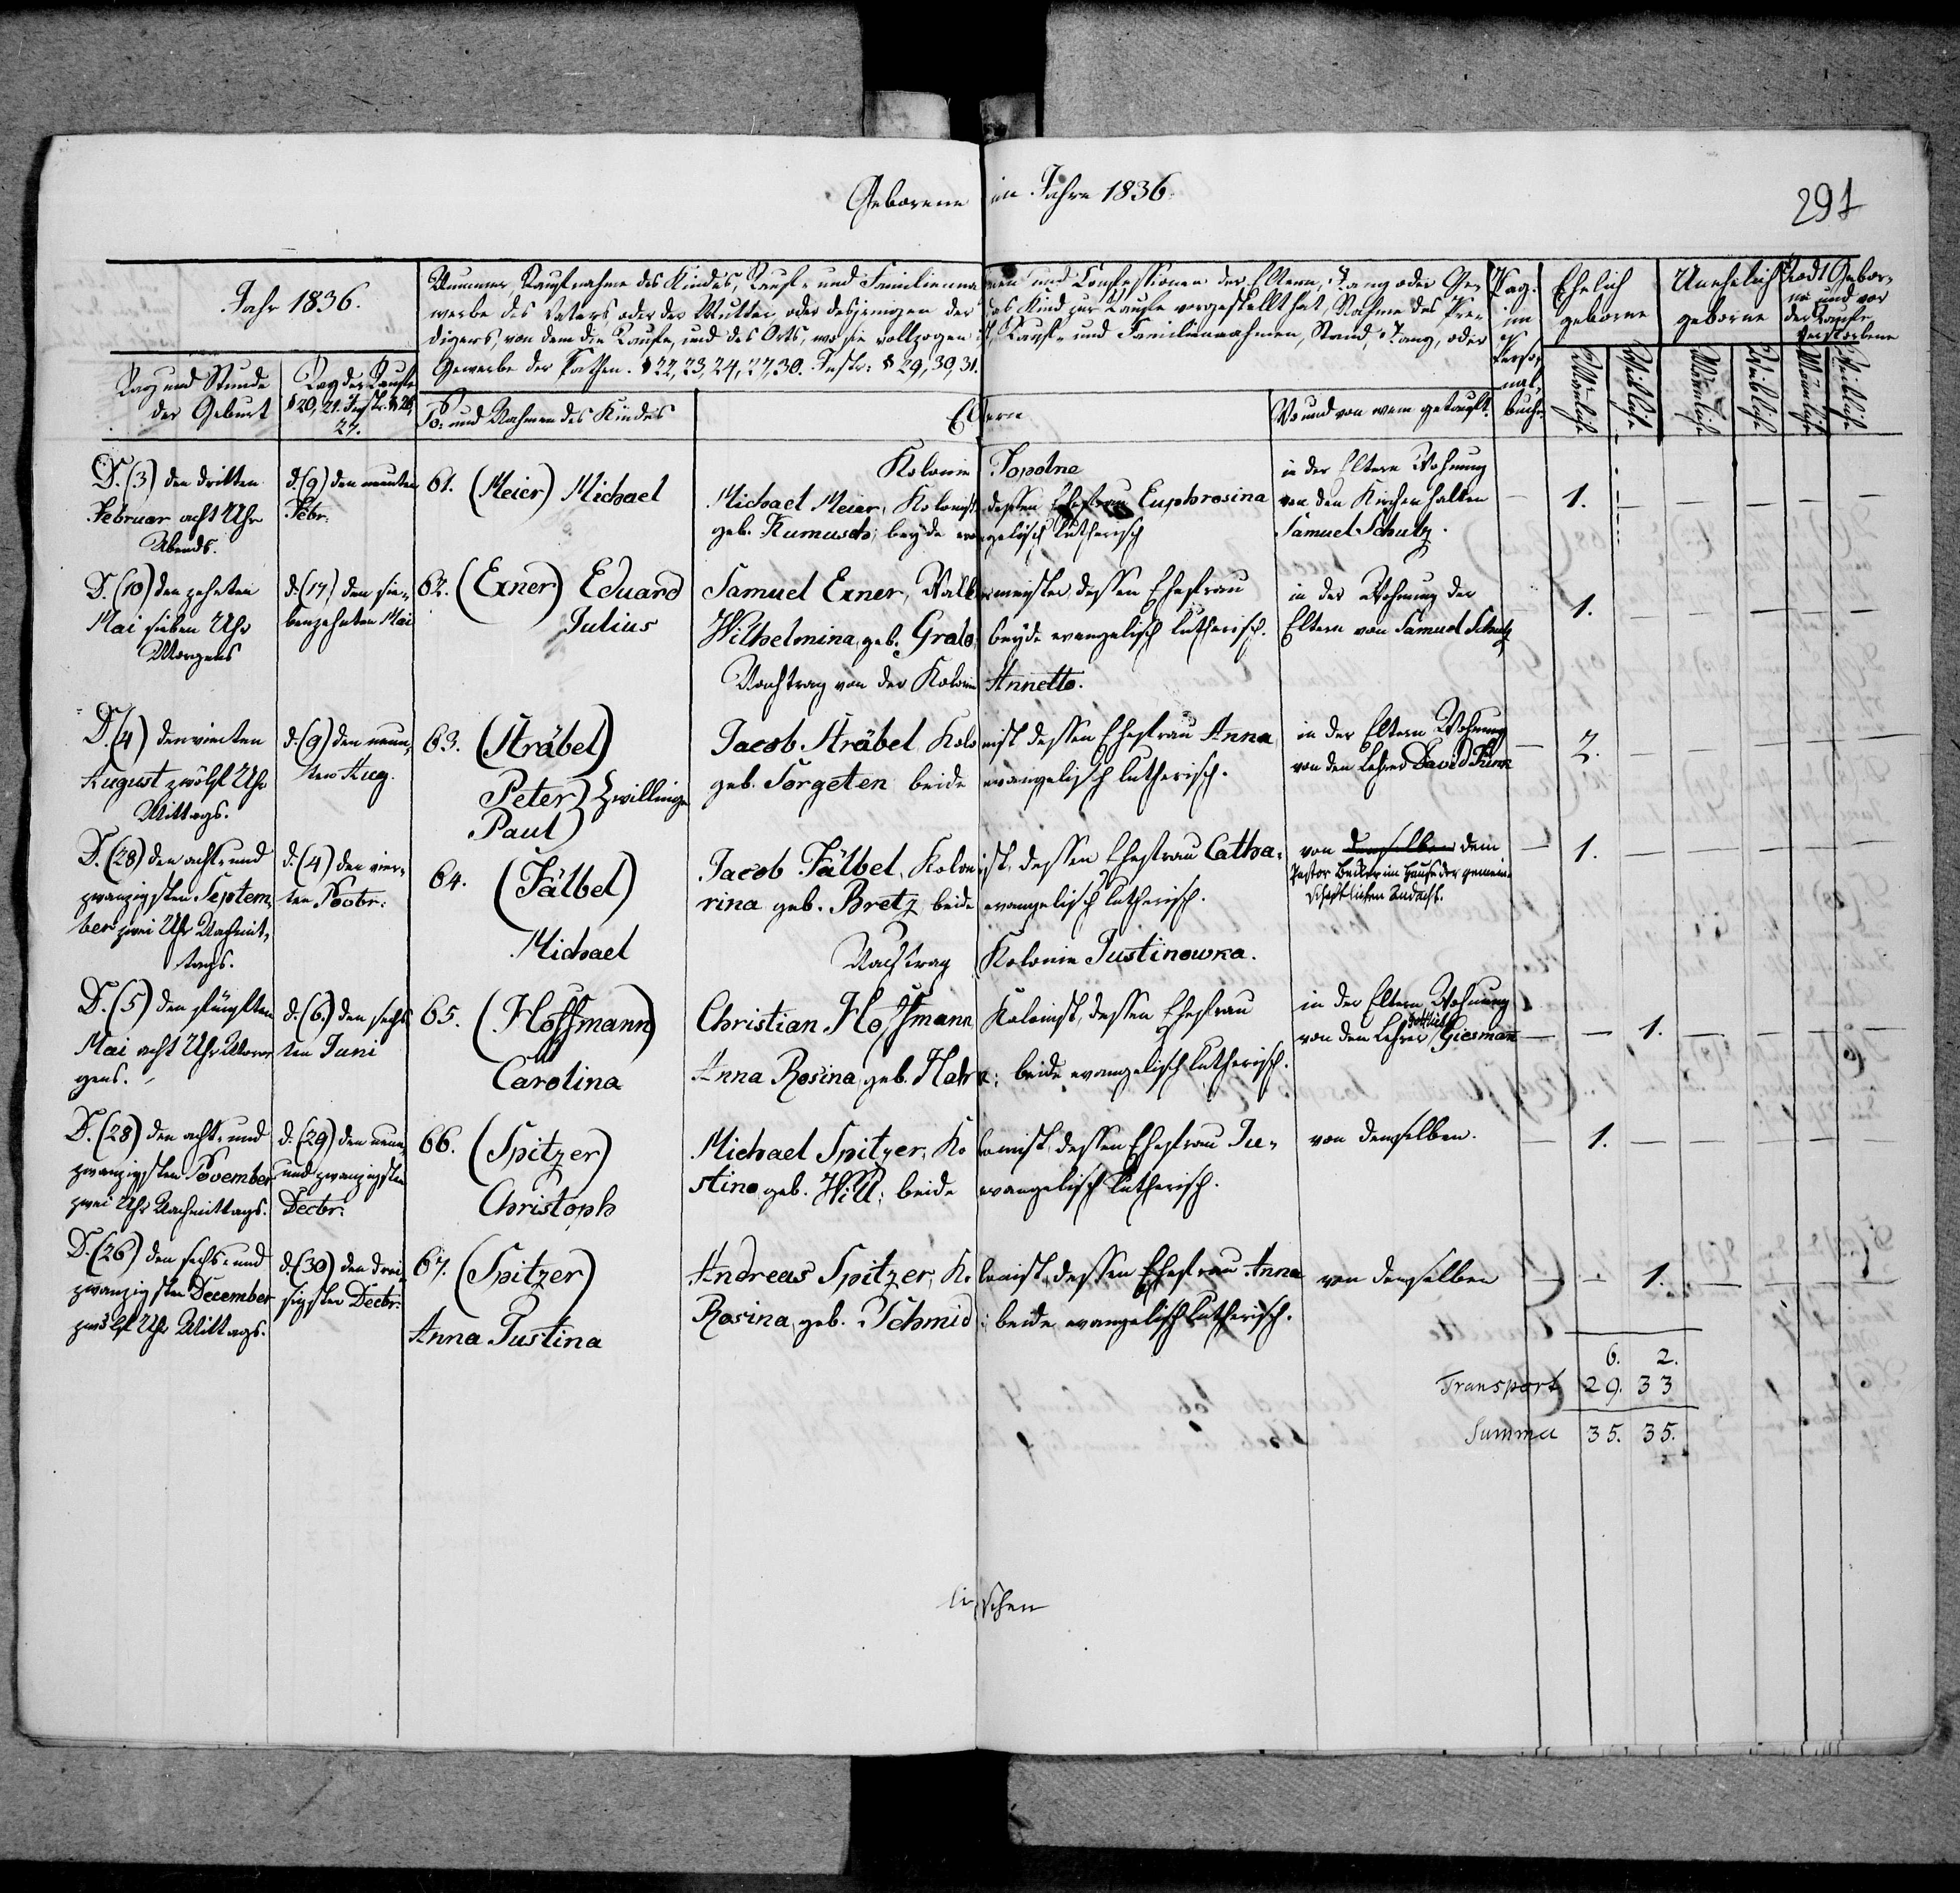 Geborene im Jahre 1836.
291
Jahr 1836.
Nummer, Taufnahme des Kindes, Tauf- und Familienna men und Confessionen der Eltern, Rang oder Ge-
werbe des Vaters oder der Mutter, oder desjenigen der das Kind zur Taufe vorgestellt hat, Nahme des Pre-
digers, von dem die Taufe, und des Orts, wo sie vollzogen ist, Tauf- und Familiennahmen, Stand, Rang, oder
Gewerbe der Pathen. § 22, 23, 24, 27, 30. Instr: § 29, 30, 31.
Pag.
im
Perso-
nal-
buch
Ehelich
geborne
Unehelich
geborne
Todt Gebor-
ne und vor
der Taufe
Verstorbene
Tag und Stunde
der Geburt
Tag der Taufe
§ 20, 21. Instr. § 26,
27.
No. und Nahmen des Kindes
Eltern
Wo und von wem getauft.
Männliche
Weibliche
Männliche
Weibliche
Männliche
Weibliche
Kolonie Topolne
D. (3) den dritten
Februar acht Uhr
Abends.
d. (9) den neunten
Febr:
61. (Meier) Michael
Michael Meier, Kolonist dessen Ehefrau Euphrosina
geb. Kumusch; beyde evangelisch lutherisch
in der Eltern Wohnung
von den Kirchenhalter
Samuel Schulz.
1.
D. (10) den zehnten
Mai sieben Uhr
Morgens
d. (17) den sie-
benzehnten Mai
62. (Exner) Eduard
Julius
Samuel Exner, Walkermeister dessen Ehefrau
Wilhelmina, geb. Grab, beyde evangelisch lutherisch.
in der Wohnung der
Eltern von Samuel Schulz
1.
Nachtrag von der Kolonie Annette.
D. (4) den vierten
August zwölf Uhr
Mittags.
d. (9) den neun-
ten Aug.
63. (Sträbel)
Peter) Zwillinge
Paul)
Jacob Sträbel Kolonist dessen Ehefrau Anna
geb. Sorgeten beide evangelisch lutherisch.
in der Eltern Wohnung
von den Lehrer David Funk
2.
D. (28) den acht- und
zwanzigsten Septem-
ber zwei Uhr Nachmit-
tags.
d. (4) den vier-
ten Nobr:
64. (Fälbel)
Michael
Jacob Fälbel, Kolonist, dessen Ehefrau Catha-
rina geb. Bretz beide evangelisch lutherisch.
von demselben dem
Pastor Becker im Hause der gemein-
schaftlichen Andacht.
1.
Nachtrag Kolonie Justinowka.
D. (5) den fünften
Mai acht Uhr Mor-
gens.
d. (6) den sechs
ten Juni
65. (Hoffmann)
Carolina
Christian Hoffmann Kolonist, dessen Ehefrau
Anna Rosina, geb. Hahn; beide evangelisch lutherisch.
in der Eltern Wohnung
von den Lehrer Gottlieb Giesmann
1.
D. (28) den acht- und
zwanzigsten November
zwei Uhr Nachmittags.
d. (29) den neun-
und zwanzigsten
Decbr:
66. (Spitzer)
Christoph
Michael Spitzer, Kolonist, dessen Ehefrau Ju-
stina geb. Will; beide evangelisch lutherisch.
von demselben.
1.
D. (26) den sechs- und
zwanzigsten December
zwölf Uhr Mittags.
d. (30) den drei-
sigsten Decbr:
67. (Spitzer)
Anna Justina
Andreas Spitzer, Kolonist, dessen Ehefrau Anna
Rosina, geb. Schmid; beide evangelisch lutherisch.
von demselben
1.
6. 2.
Transport 29. 33
Summa 35. 35.